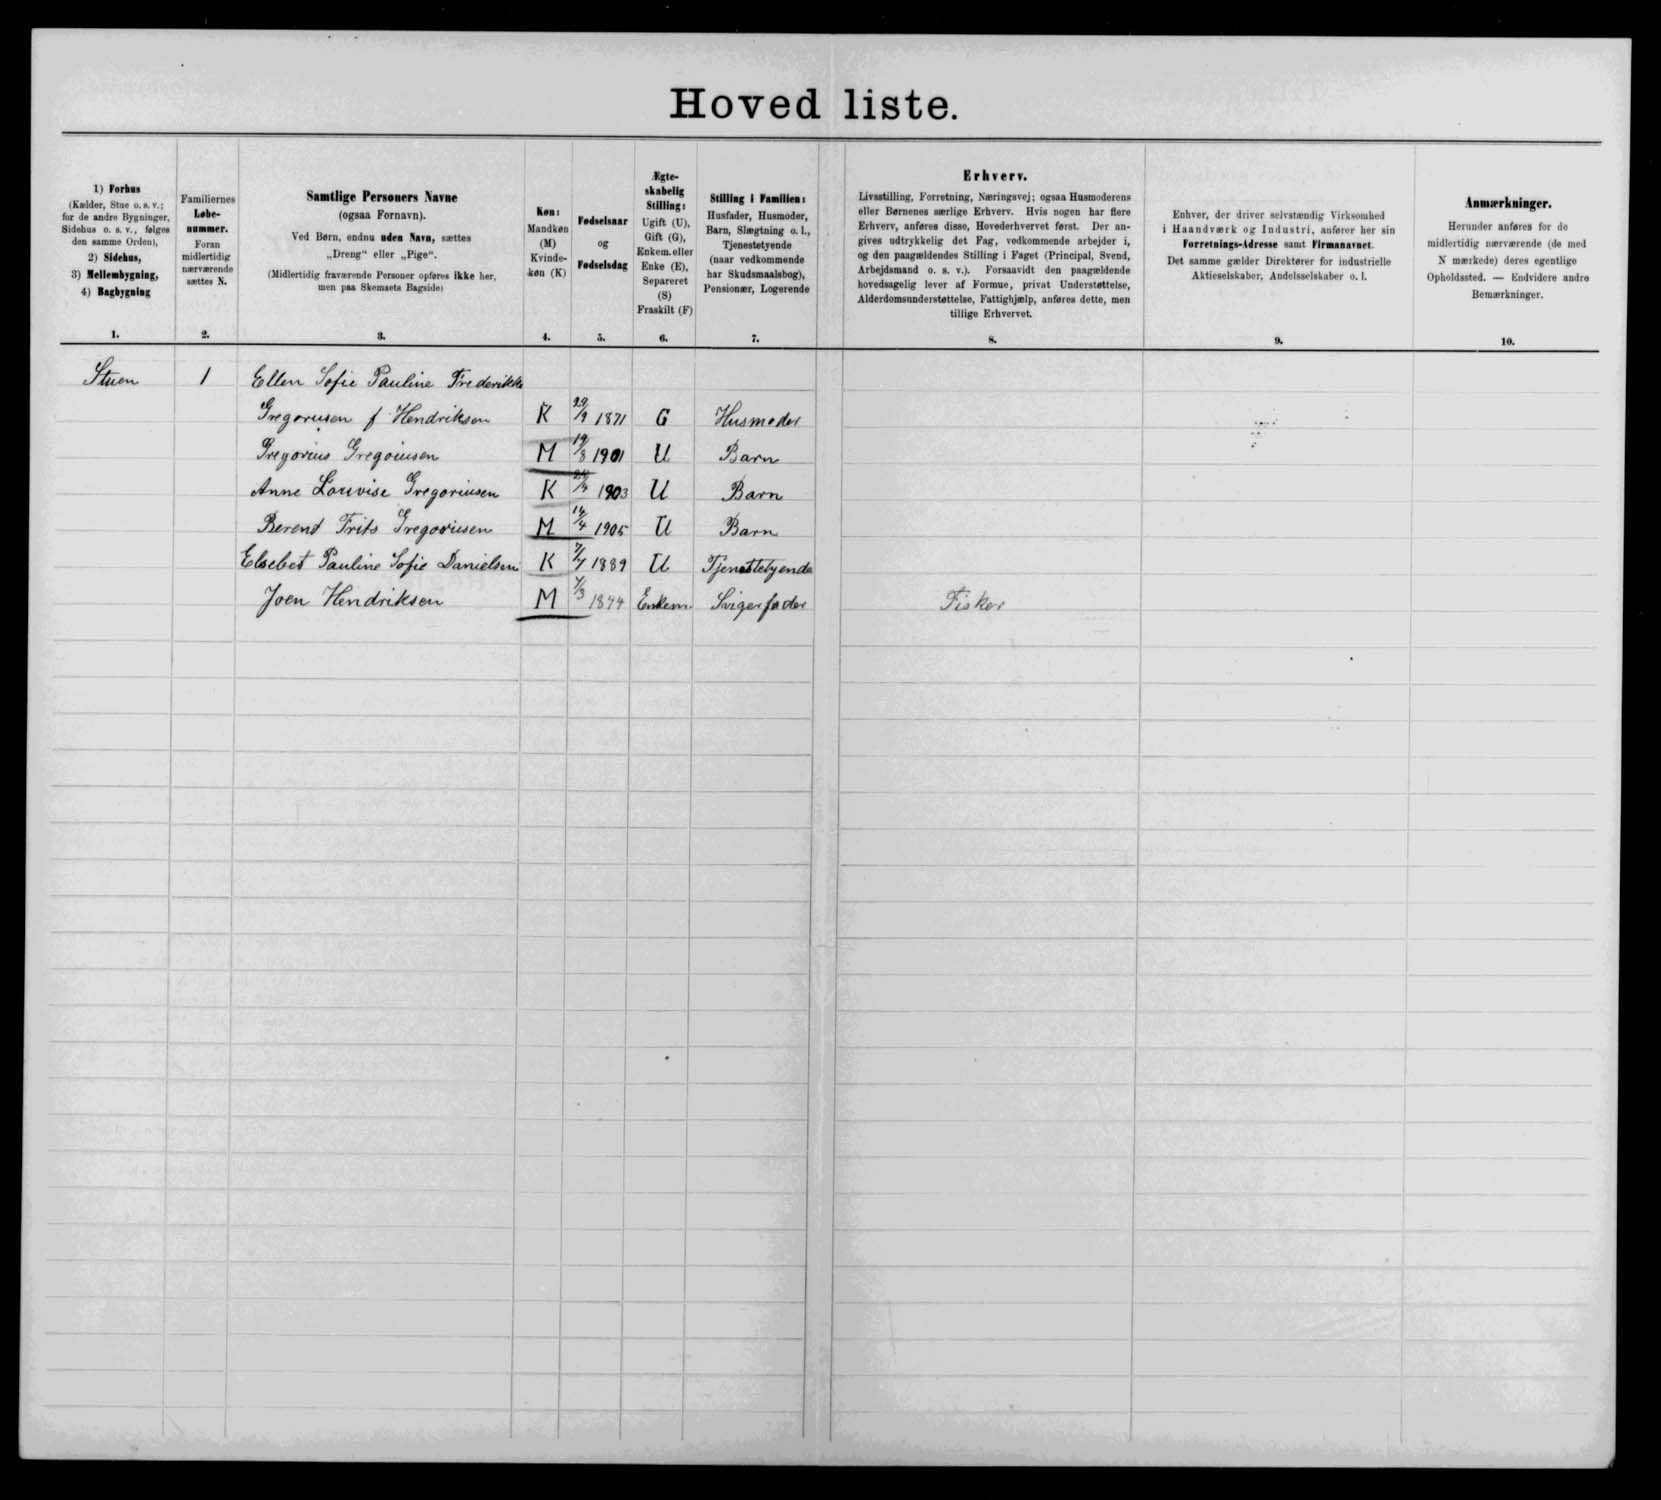 Hoved liste.
1) Forhus
(Kælder, Stue o. s. v.;
for de andre Bygninger,
Sidehus o. s. v., følges
den samme Orden),
2) Sidehus,
3) Mellembygning,
4) Bagbygning
1.
Familiernes
Løbe-
nummer.
Foran
midlertidig
nærværende
sættes N.
2.
Samtlige Personers Navne
(ogsaa Fornavn).
Ved Børn, endnu uden Navn, sættes
„Dreng“ eller „Pige“.
(Midlertidig fraværende Personer opføres ikke her,
men paa Skemaets Bagside)
3.
Køn:
Mandkøn
(M)
Kvinde-
køn (K)
4.
Fødselsaar
og
Fødselsdag
5.
Ægte-
skabelig
Stilling:
Ugift (U),
Gift (G),
Enkem. eller
Enke (E),
Separeret
(S)
Fraskilt (F)
6.
Stilling i Familien:
Husfader, Husmoder,
Barn, Slægtning o. l.,
Tjenestetyende
(naar vedkommende
har Skudsmaalsbog),
Pensionær, Logerende
7.
Erhverv.
Livsstilling, Forretning, Næringsvej; ogsaa Husmoderens
eller Børnenes særlige Erhverv. Hvis nogen har flere
Erhverv, anføres disse, Hovederhvervet først. Der an-
gives udtrykkelig det Fag, vedkommende arbejder i,
og den paagældendes Stilling i Faget (Principal, Svend,
Arbejdsmand o. s. v.). Forsaavidt den paagældende
hovedsagelig lever af Formue, privat Understøttelse,
Alderdomsunderstøttelse, Fattighjælp, anføres dette, men
tillige Erhvervet.
8.
Enhver, der driver selvstændig Virksomhed
i Haandværk og Industri, anfører her sin
Forretnings-Adresse samt Firmanavnet.
Det samme gælder Direktører for industrielle
Aktieselskaber, Andelsselskaber o. l.
9.
Anmærkninger.
Herunder anføres for de
midlertidig nærværende (de med
N mærkede) deres egentlige
Opholdssted. — Endvidere andre
Bemærkninger.
10.
Stuen 1 Ellen Sofie Pauline Frederikke
Gregoriusen f Hendriksen K 29/9 1871 G Husmoder
Gregorius Gregoriusen M 19/8 1901 U Barn
Anne Louvise Gregoriusen K 1903 U Barn
Berend Frits Gregoriusen M 14/4 1905 U Barn
Elsebet Pauline Sofie Danielsen K 7/7 1889 U Tjenstetyende
Joen Hendriksen M 7/3 1844 Enkem. Svigerfader Fisker